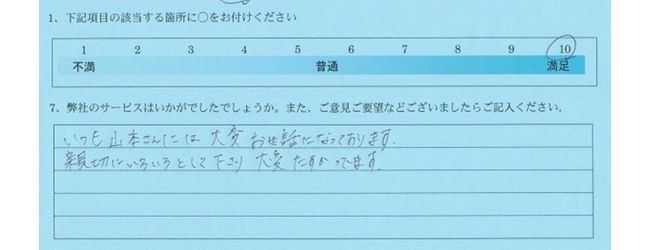 1、下記項目の該当する箇所に○をお付けください
1 2 3 4 5 6 7 8 9 10
不満 普通 満足
7、弊社のサービスはいかがでしたでしょうか。また、ご意見ご要望などございましたらご記入ください。
いつも山本さんには大変お世話になっております。
親切にいろいろとして下さり大変たすかってます。